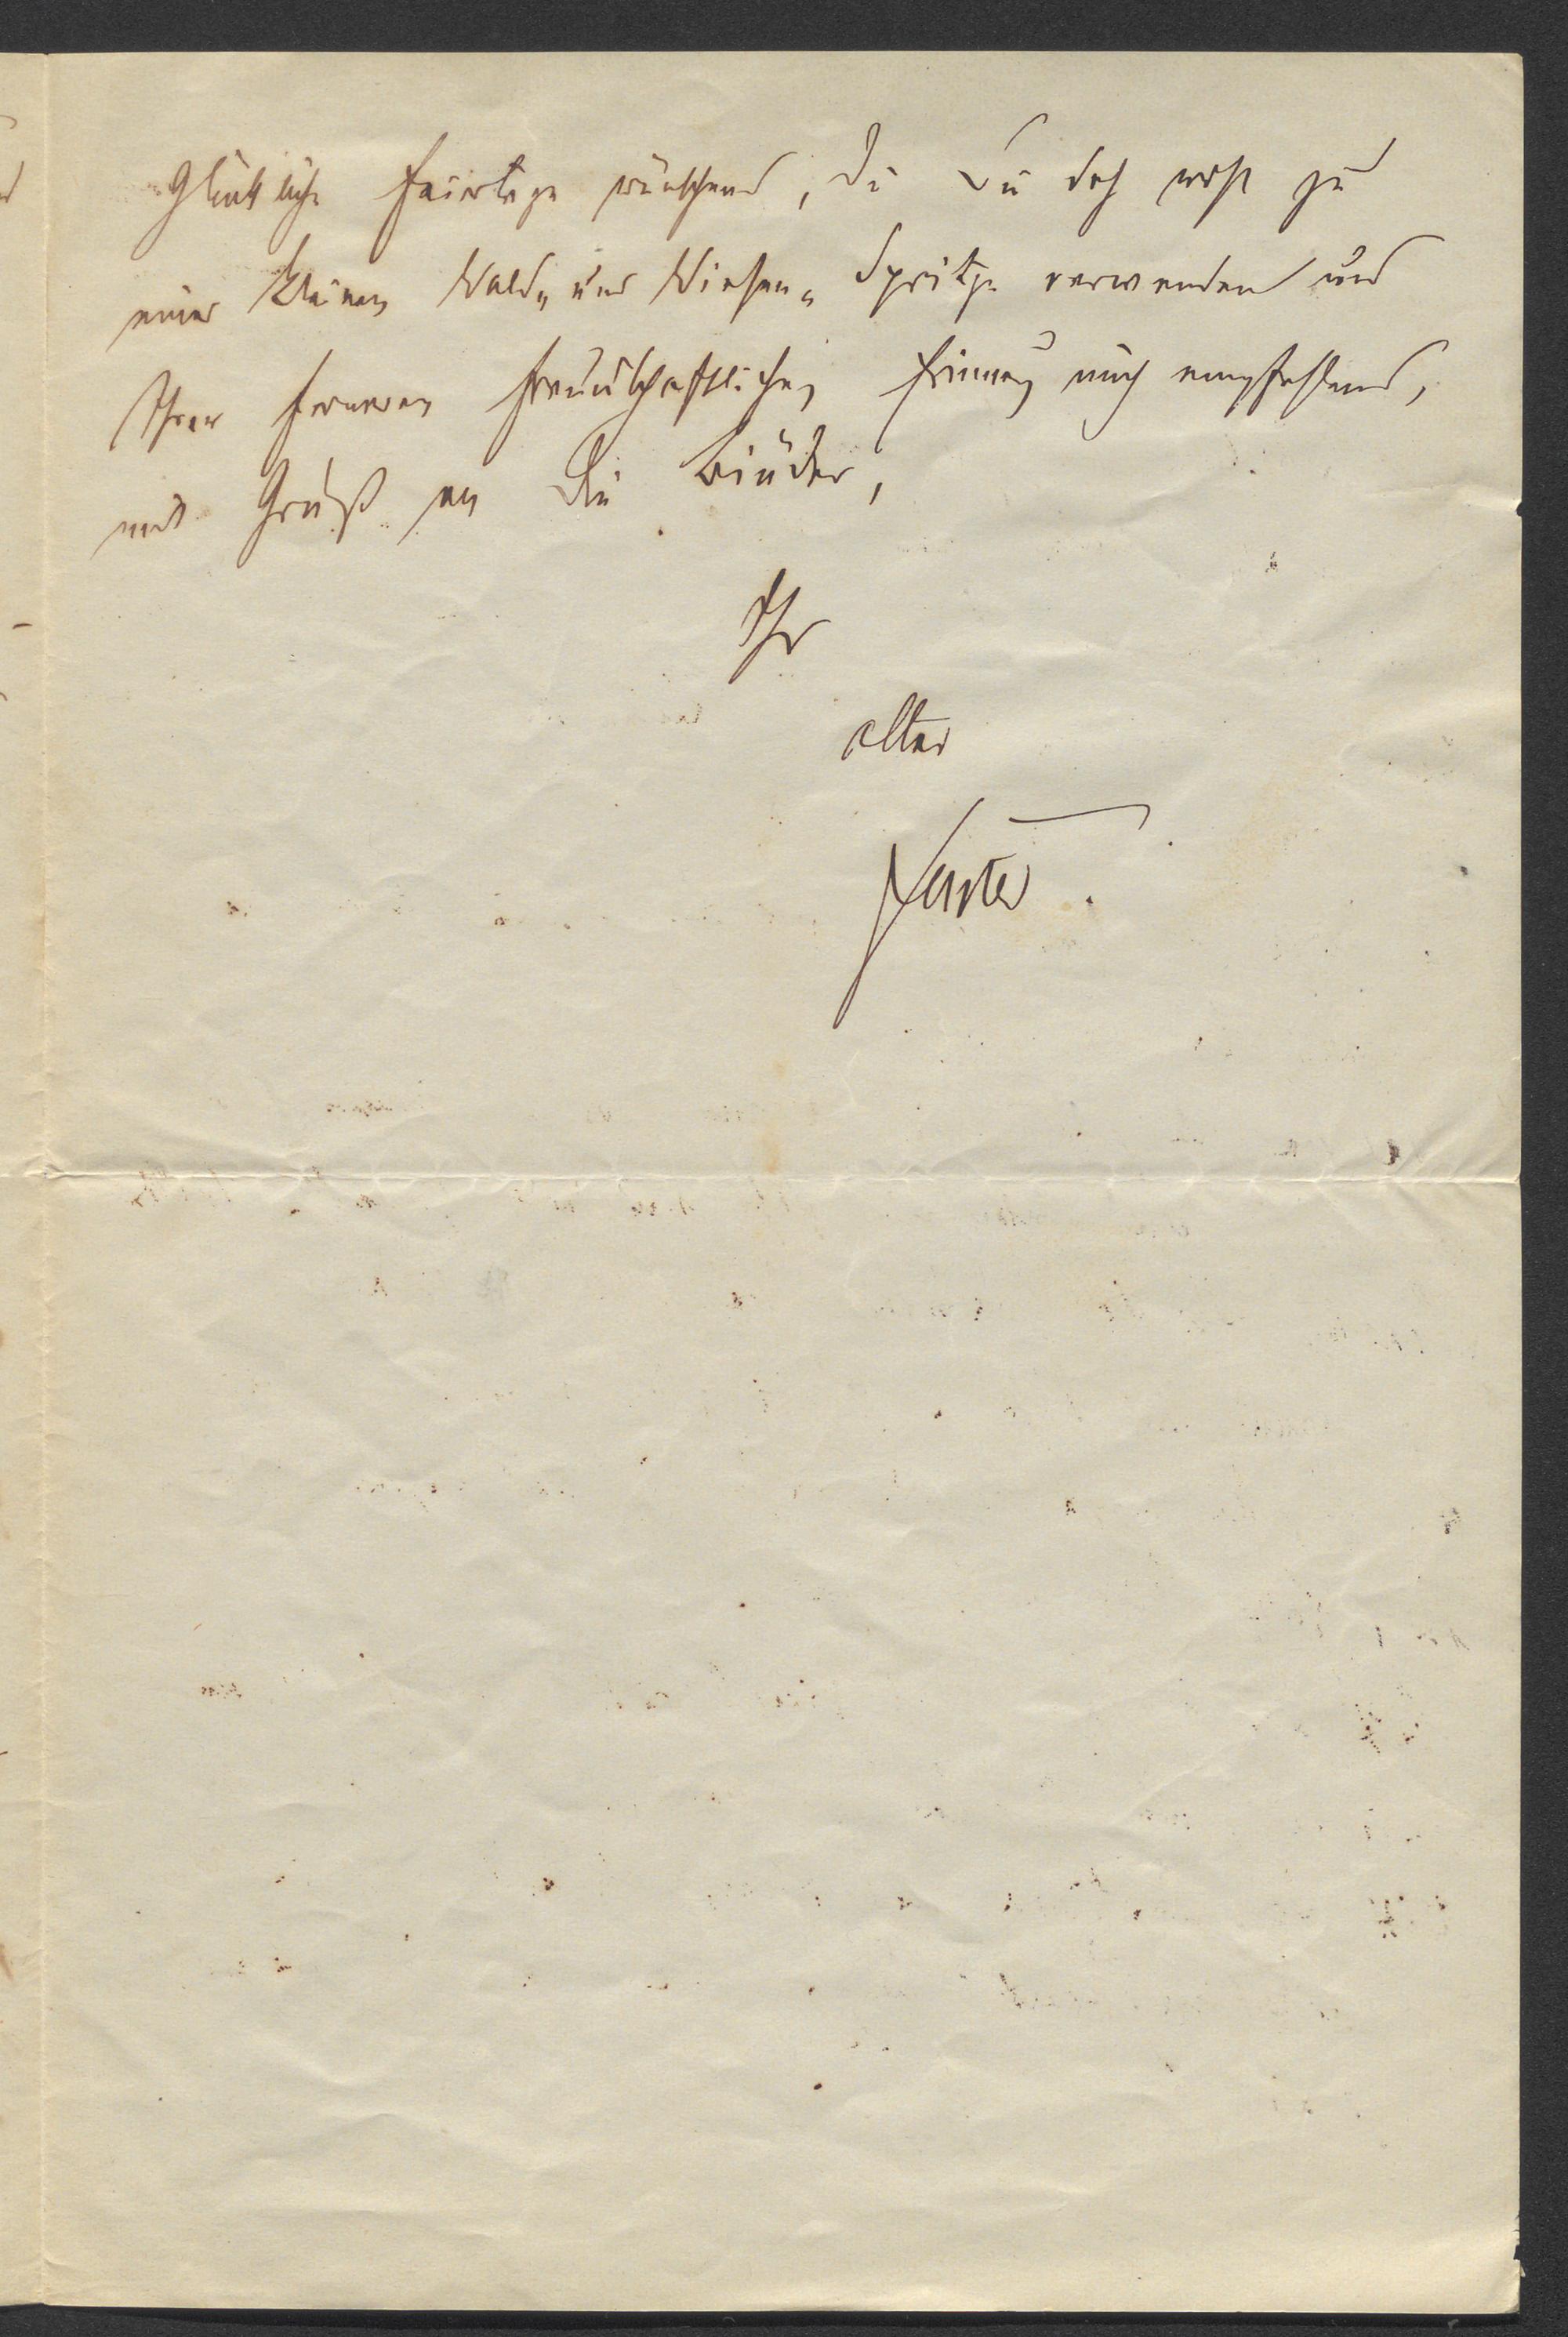 Glückliche Feiertage wünschend, die Sie doch wohl zu
einer kleinen Wald- und Wiesen- Spritze verwenden und
Ihrer ferneren freundschaftlichen Erinnerg mich empfehlend,
mit Gruß an die Brüder,
Ihr
alter